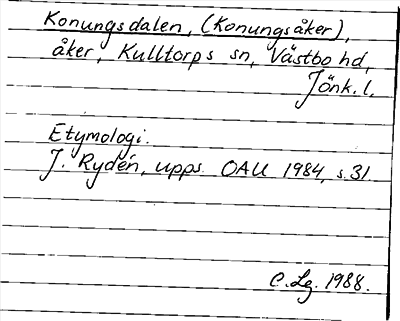 Konungsdalen, (Konungsåker),
åker, Kulltorps sn, Västbo hd,
Jönk. l.
Etymologi.
J. Rydén, upps. OAU 1984, s. 31.
C. Lg. 1988.